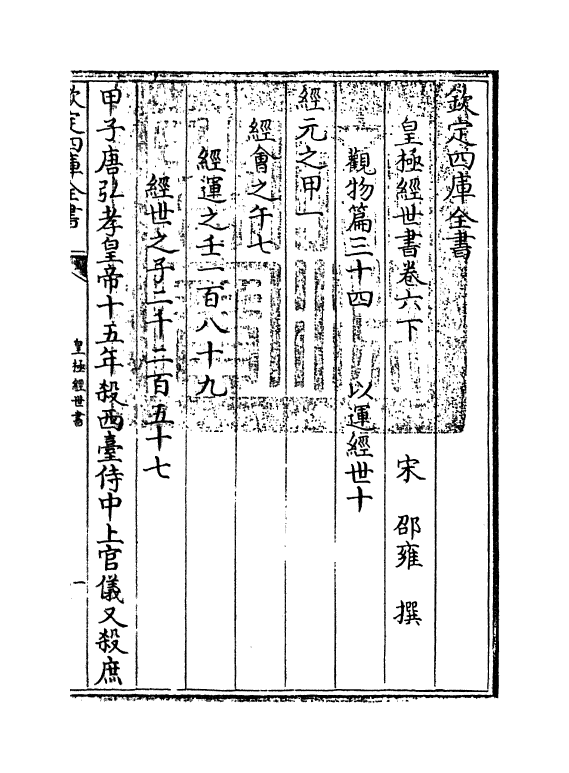 欽定四庫全書
皇極經世書卷六下
宋 邵雍 撰
觀物篇三十四 以運經世十
經元之甲一
經會之午七
經運之壬一百八十九
經世之子二千二百五十七
甲子唐弘孝皇帝十五年殺西臺侍中上官儀又殺庶
欽定四庫全書
皇極經世書
一